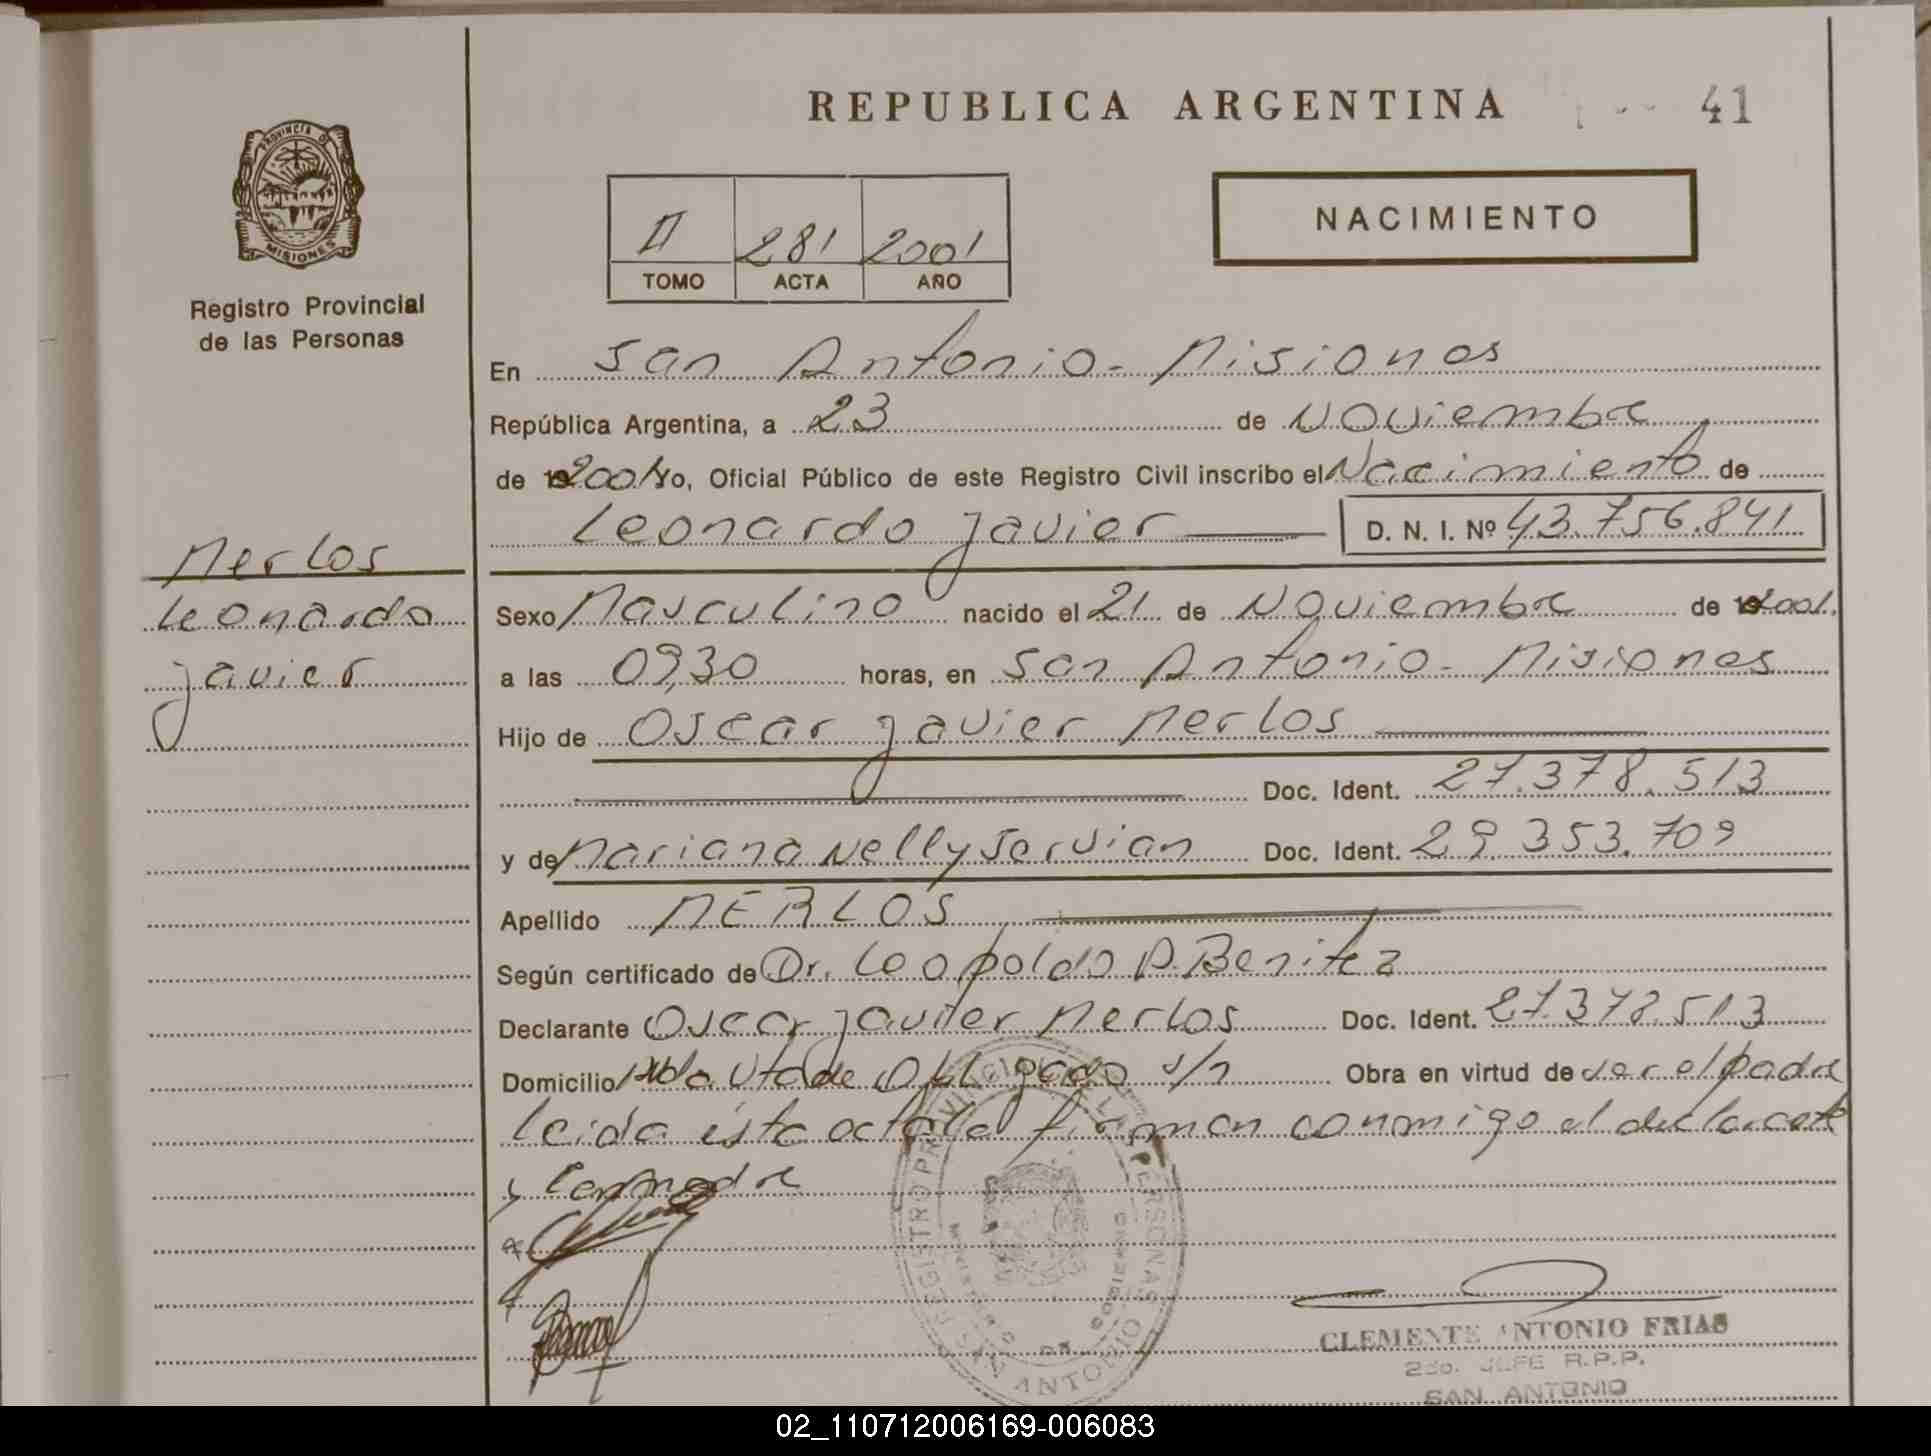 REPUBLICA ARGENTINA 41
PROVINCIA DE
MISIONES
Registro Provincial
de las Personas
NACIMIENTO
II 281 2001
TOMO ACTA AÑO
En San Antonio - Misiones
República Argentina, a 23 de Noviembre
de 2001 Yo, Oficial Público de este Registro Civil inscribo el Nacimiento de
Leonardo Javier D. N. I. Nº 43.756.841
Merlos
Leonardo
Javier
Sexo Masculino nacido el 21 de Noviembre de 2001.
a las 09,30 horas, en San Antonio - Misiones
Hijo de Oscar Javier Merlos
Doc. Ident. 27.378.513
y de Mariana Nelly Servian Doc. Ident. 29.353.709
Apellido MERLOS
Según certificado de Dr. Leopoldo A. Benitez
Declarante Oscar Javier Merlos Doc. Ident. 27.378.513
Domicilio de Obligado s/n Obra en virtud de ser el padre
leida ésta acta la firman conmigo el declarante
y la madre
REGISTRO PROVINCIAL DE LAS PERSONAS
MINISTERIO DE GOBIERNO
SAN ANTONIO
CLEMENTE ANTONIO FRIAS
2do. JEFE R.P.P.
SAN ANTONIO
02_110712006169-006083